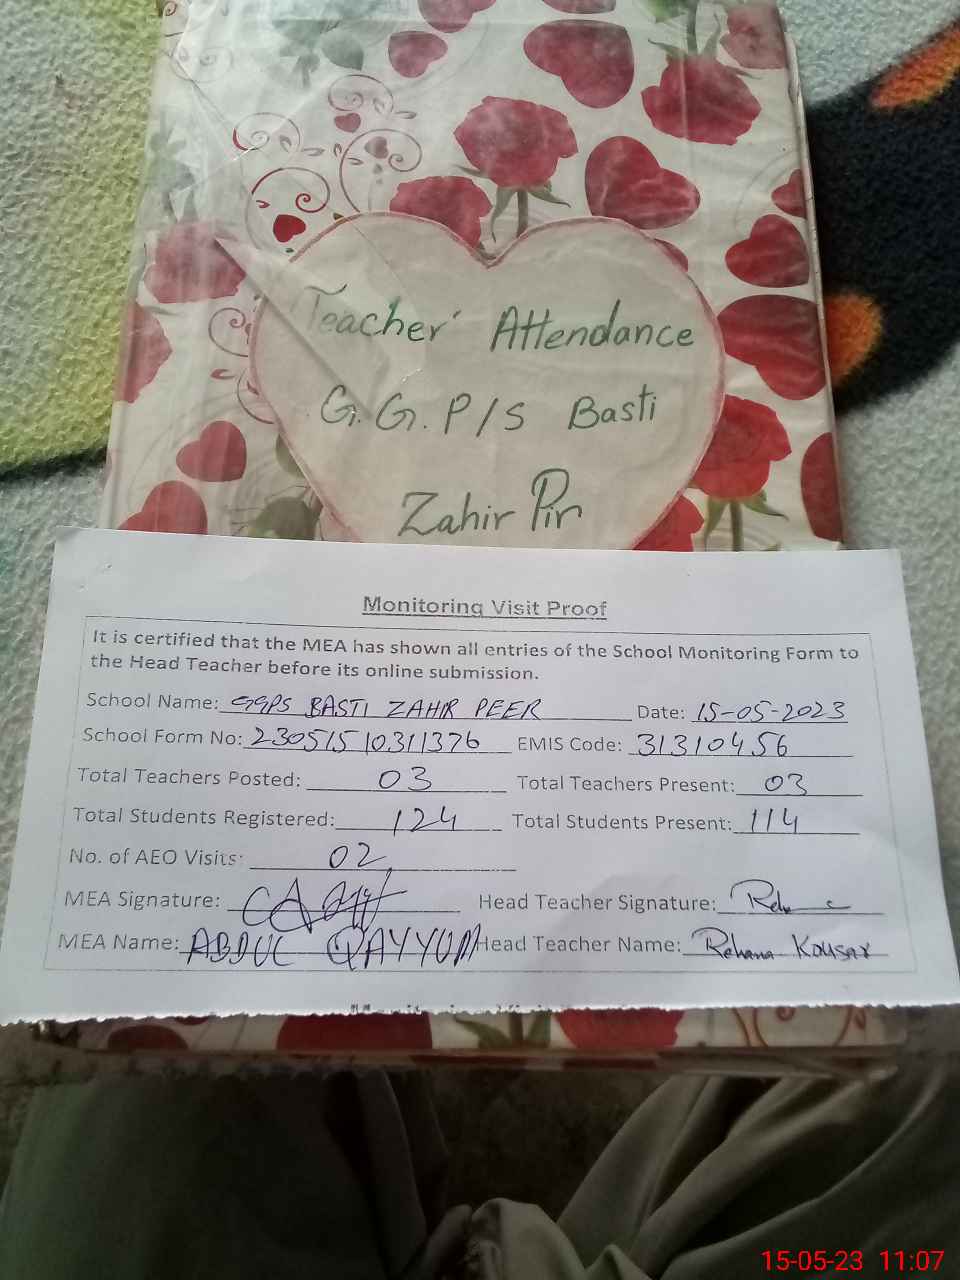 Teacher' Attendance
G.G.P/S Basti
Zahir Pir
Monitoring Visit Proof
It is certified that the MEA has shown all entries of the School Monitoring Form to
the Head Teacher before its online submission.
School Name: GGPS BASTI ZAHIR PEER Date: 15-05-2023
School Form No: 23051510311376 EMIS Code: 31310456
Total Teachers Posted: 03 Total Teachers Present: 03
Total Students Registered: 124 Total Students Present: 114
No. of AEO Visits: 02
MEA Signature: Head Teacher Signature:
MEA Name: ABDUL QAYYUM Head Teacher Name: Rehana Kousar
15-05-23 11:07